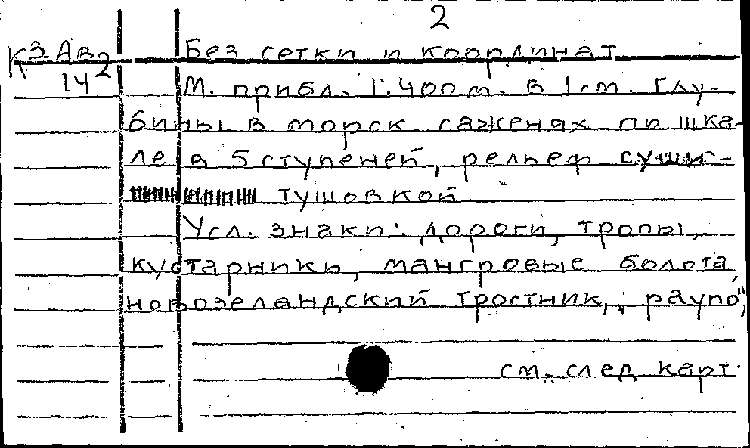 2
К3 Ав2 Без сетки и координат
142 М. прибл. 1:400 м. в 1 см. Глу-
бины в морск саженях по шка-
ле в 5 ступеней, рельеф суши -
тушовкой
Усл. знаки: дороги, тропы,
кустарники, мангровые болота,
новозеландский тростник, „раупо",
см. след карт.